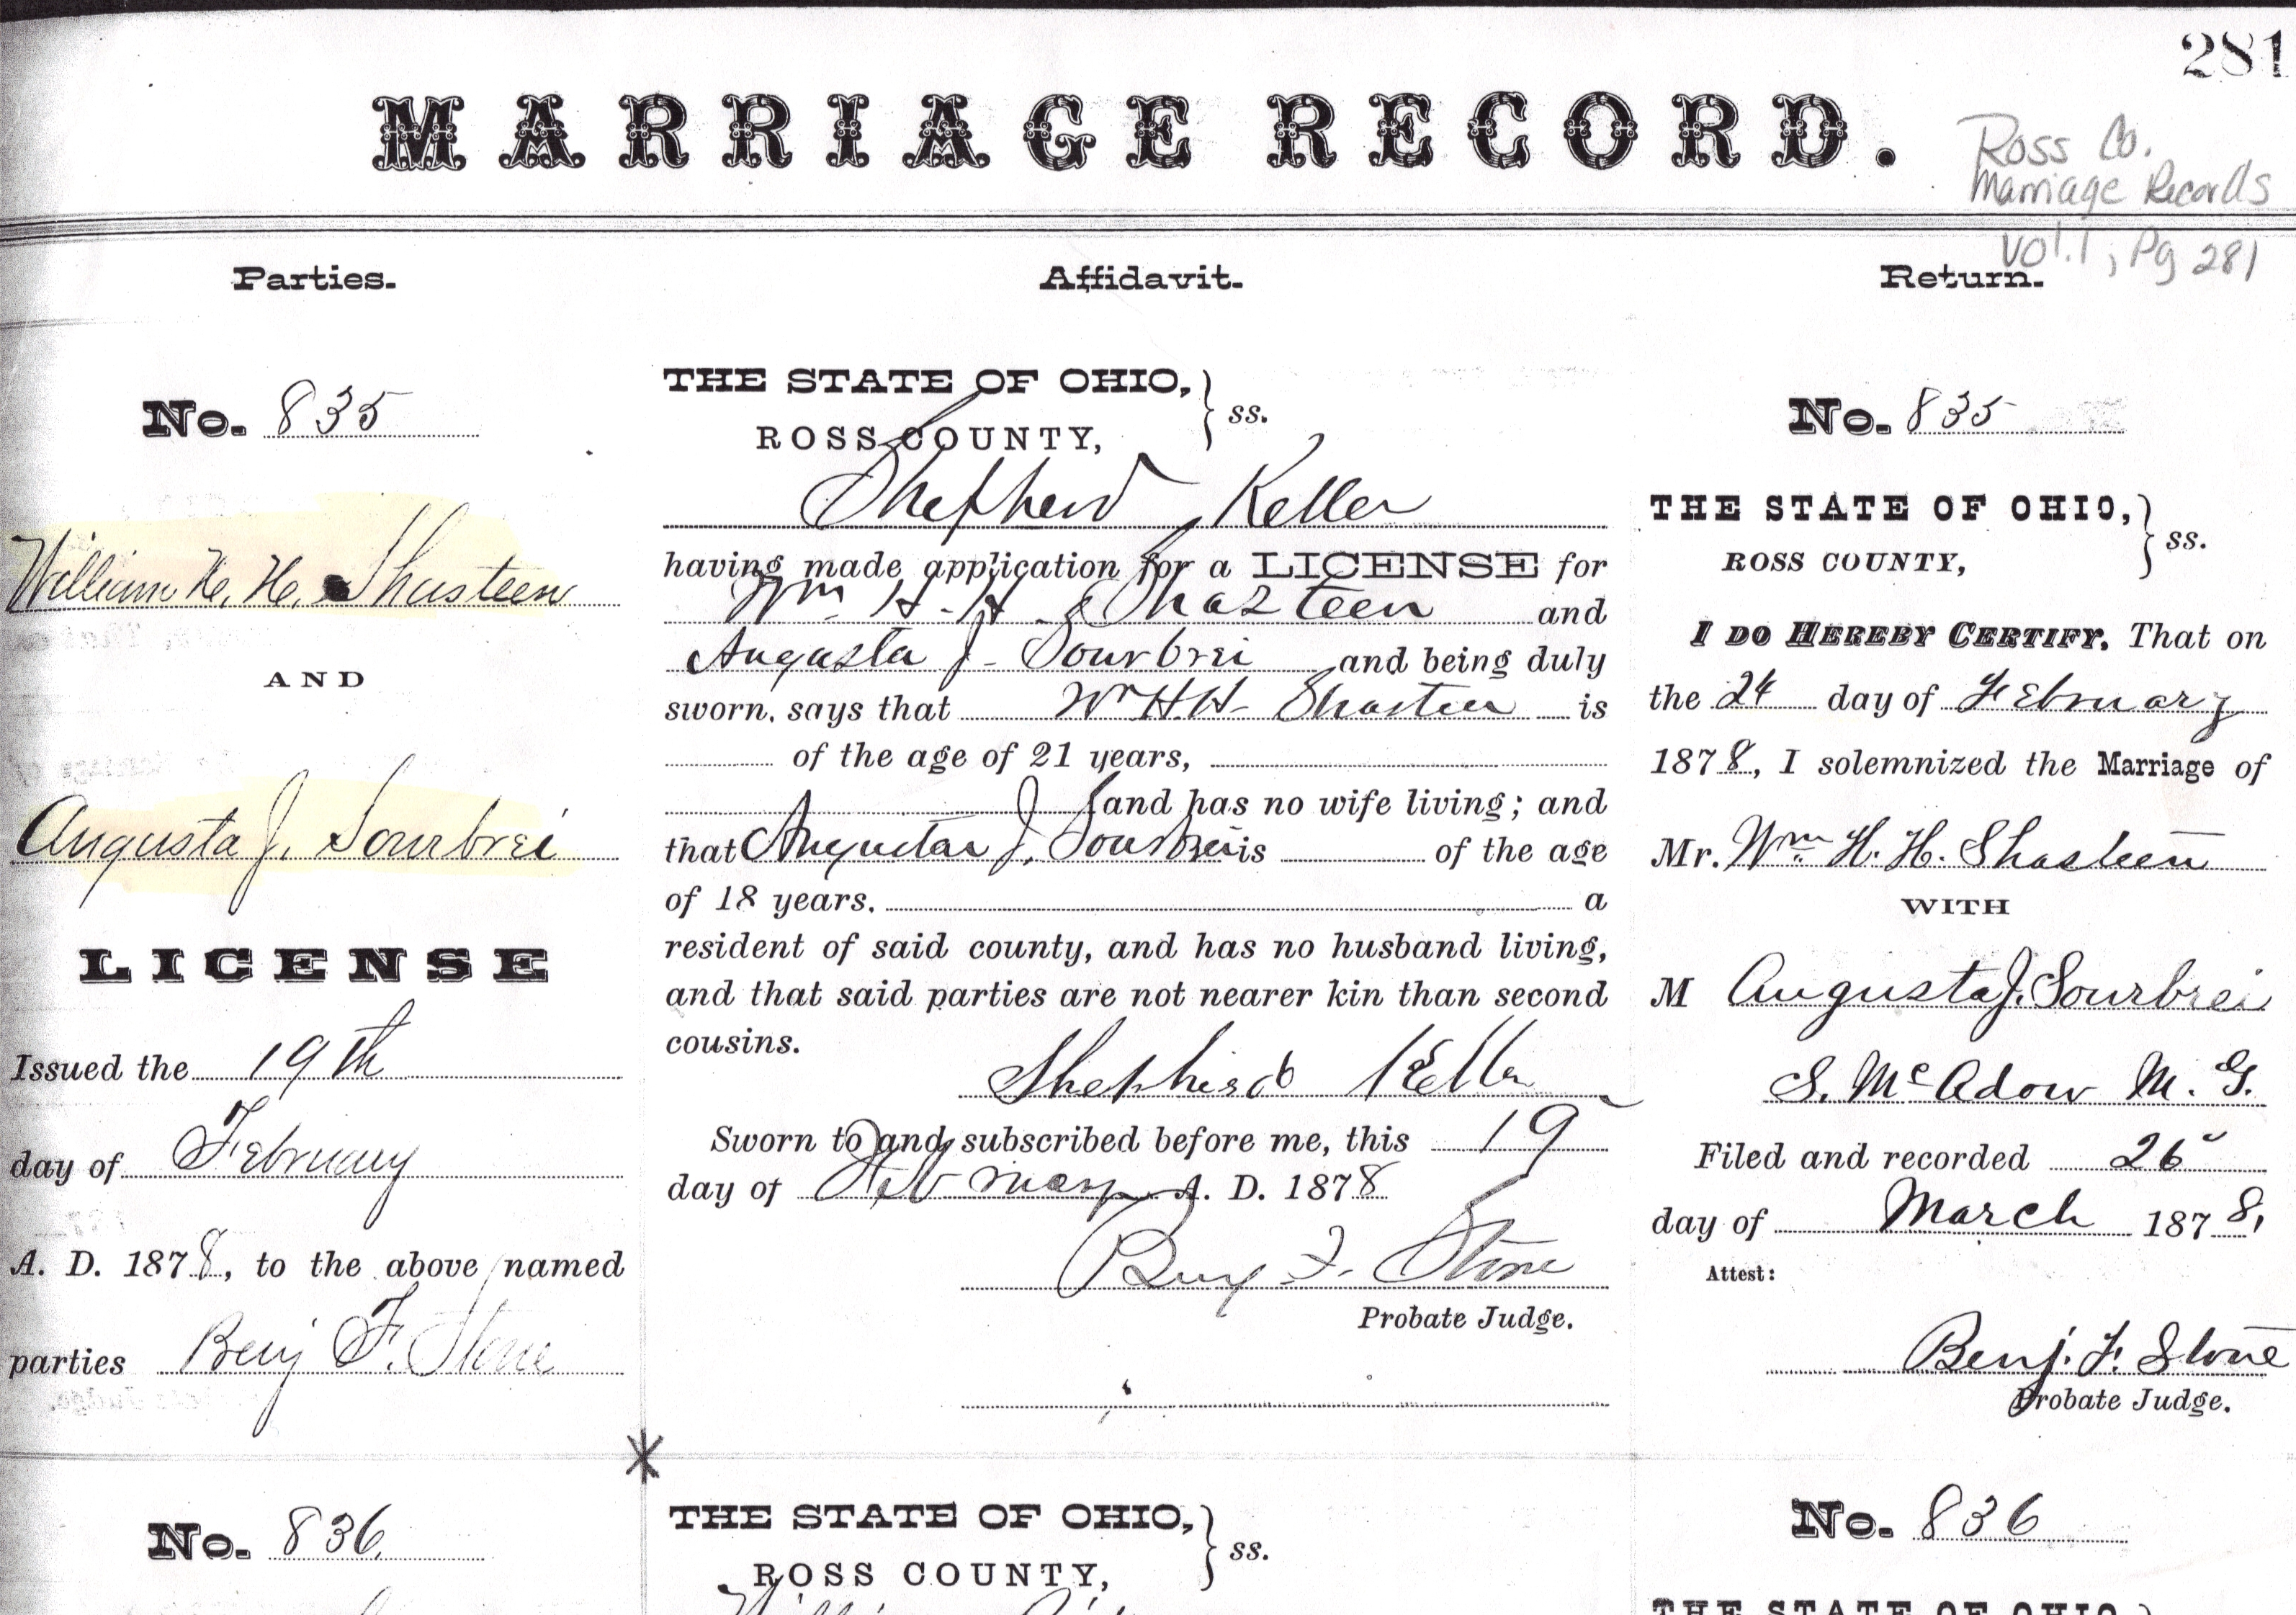 281
MARRIAGE RECORD.
Ross Co.
Marriage Records
Vol. 1, Pg 281
Parties.
No. 835
William H. H. Shasteen
AND
Augusta J. Sourbrei
LICENSE
Issued the 19th
day of February
A. D. 1878, to the above named
parties Benj F. Stone
No. 836
Affidavit.
THE STATE OF OHIO, } ss.
ROSS COUNTY,
Shepherd Keller
having made application for a LICENSE for
Wm H. H. Shasteen and
Augusta J. Sourbrei and being duly
sworn, says that Wm H. H. Shasteen is
of the age of 21 years,
and has no wife living; and
that Augusta J. Sourbrei is of the age
of 18 years, a
resident of said county, and has no husband living,
and that said parties are not nearer kin than second
cousins.
Shepherd Keller
Sworn to and subscribed before me, this 19
day of February A. D. 1878
Benj F. Stone
Probate Judge.
THE STATE OF OHIO, } ss.
ROSS COUNTY,
Return.
No. 835
THE STATE OF OHIO, } ss.
ROSS COUNTY,
I DO HEREBY CERTIFY, That on
the 24 day of February
1878, I solemnized the Marriage of
Mr. Wm H. H. Shasteen
WITH
M Augusta J. Sourbrei
S. McAdow M. G.
Filed and recorded 26
day of March 1878,
Attest:
Benj. F. Stone
Probate Judge.
No. 836
THE STATE OF OHIO,